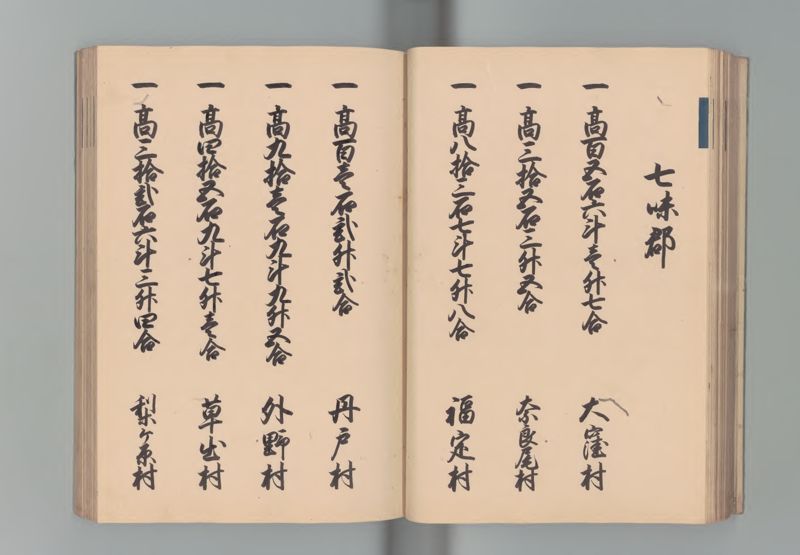 七味郡
一 高百五石六斗壱升七合 大窪村
一 高三拾五石三升五合 奈良尾村
一 高八拾三石七斗七升八合 福定村
一 高百壱石弐升弐合 丹戸村
一 高九拾壱石九斗九升五合 外野村
一 高四拾五石九斗七升壱合 草出村
一 高三拾弐石六斗三升四合 梨ヶ原村